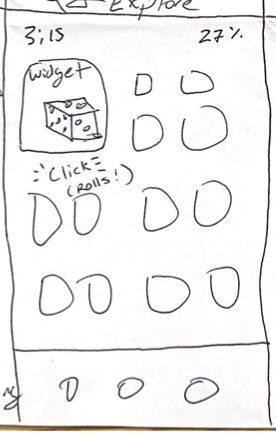 Explore
3:15 27%
widget
Click
(rolls!)